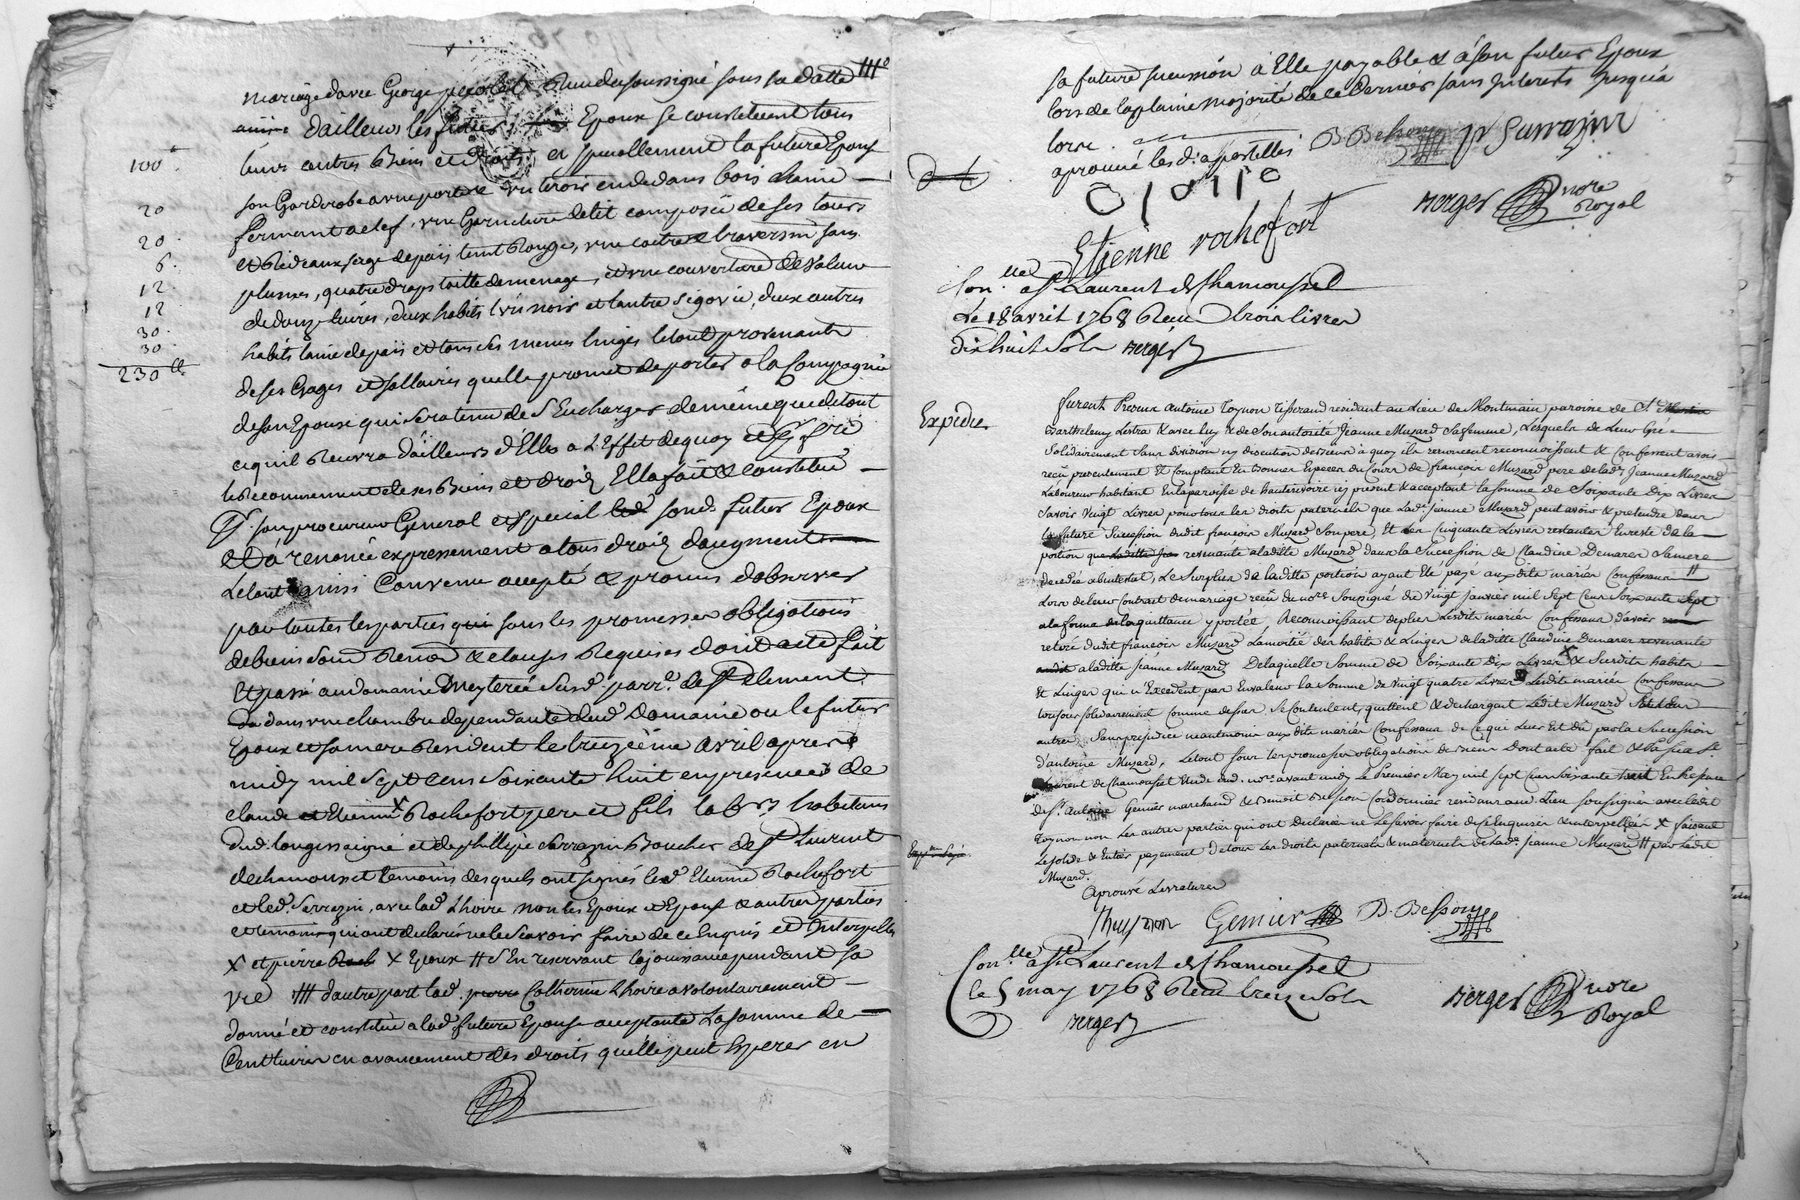 mariage d'avec George Reçu du soussigné sous sa datte
d'ailleurs les futurs Epoux se constituent tous
100
leurs autres Biens et droits et speciallement la future Epouse
son Garderobe a une porte tirois en dedans bois chaine
20
fermant a clef, une Garniture de lit composée de ses tours
20
et Rideaux serge de païs teint Rouge, une coitre traversin sans
6
plumes, quatre draps toille de menage, et une couverture de valeur
12
de douze livres, deux habits l'un noir et l'autre segovie, deux autres
12
30
habits laine de païs et tous ses menus linges le tout provenant
30
230 ll
de ses Gages et sallaires quelle promet de porter a la Compagnie
de son Epoux qui sera tenu de s'Encharger de même que de tout
ce qu'il Recevra d'ailleurs d'Elle a L'Effet de quoy et
le Recouvrement de ses Biens et droits Elle a fait et constitué
son procureur General et special sond. futur Epoux
et a renoncé expressement a tous droits daugment
Le tout ainsi Convenu accepté et promis d'observer
par toutes les parties sous les promesses obligations
de biens soum. Renon. et clauses Requises dont acte fait
et passé au domaine Meyterée susd. parr. de St Clement
dans une chambre dependante dud. Domaine ou le futur
Epoux et sa mere Resident le treizieme avril apres
midy mil sept cens soixante huit en presence de
claude et Etienne X Rochefort pere et fils lab.rs habitans
dud. longessaigne et de phillipe Sarrazin Boucher de St Laurent
de chamousset temoins desquels ont signés led. Etienne Rochefort
et led. Sarrazin, avec lad. Lhoire non les Epoux et Epouse et autres parties
et temoins qui ont declaré ne le sçavoir faire de ce Enquis et Interpellés
X et pierre X Epoux H S'En reservant la jouissance pendant sa
vie d'autre part lad. Catherine Lhoire a volontairement
donné et constitué a lad. future Epouse acceptante La somme de
Cent livres en avancement des droits quelle peut Esperer en
sa future succession a Elle payable et a son futur Epoux
lors de la plaine majorité de ce dernier sans Interets jusqu'a
lors.
aprouvé les d. apostilles B Bessony p Sarrazin
Berger nore
Royal
Etienne rochefort
Con.lle a St Laurent de Chamousset
Le 18 avril 1768 Reçu trois livres
dix huit sols Berger
Expedié
furent Presens Antoine Toynon Tisserand residant au Lieu de Montmain paroisse de St
Barthelemy Lestra et avec luy et de son autorité Jeanne Muzard sa femme, Lesquels de Leur Gré
Solidairement sans division ny discution de biens a quoy ils renoncent reconnoissent et Confessent avoir
reçu presentement Et Comptant En bonnes Especes du Cours de françois Muzard pere de lad. Jeanne Muzard
Laboureur habitant En la paroisse de hauterivoire icy present et acceptant la somme de Soixante Dix Livres
Savoir Vingt Livres pour tous les droits paternels que lad. Jeanne Muzard peut avoir et pretendre dans
la future Succession dudit françois Muzard Son pere, Et les Cinquante Livres restantes En reste de la
portion revenante a ladite Muzard dans la Succession de Claudine Demares Sa mere
decedée abintestat, Le Surplus de ladite portion ayant Eté payé auxdits mariés Confessans H
Lors de leur Contrat de mariage reçu du nore Soussigné du Vingt Janvier mil Sept Cens Soixante Sept
a la forme de la quittance y portée, Reconnoissant de plus Lesdits mariés Confessans d'avoir
retiré dudit françois Muzard La moitié des habits et Linges de ladite Claudine Demares revenante
a ladite Jeanne Muzard De laquelle Somme de Soixante Dix Livres et Susdits habits
Et Linges qui n'Excedent pas En valeur la Somme de Vingt quatre Livres Lesdits mariés Confessans
toujours Solidairement comme dessus Se Contentent, quittent et dechargent Ledit Muzard
autres Sans prejudice neantmoins auxdits mariés Confessans de ce qui Leur Est dû par la Succession
d'antoine Muzard, Le tout Sous les promesses obligations de biens Dont acte fait et Passé a St
Laurent de Chamousset Etude dud. nore avant midy Le Premier May mil Sept Cens Soixante huit En Presence
de Sr Antoine Genier marchand et de Benoit Bession Cordonnier residans aud. Lieu Soussignés avec ledit
Toynon non les autres parties qui ont Declaré ne Le Savoir faire de ce Enquises et interpellées X faisant
Le solde et Entier payement de tous les droits paternels et maternels de lad. Jeanne Muzard H par Ledit
Muzard.
Aprouvé Les ratures
Thuynon Genier B. Bessony
Con.lle a St Laurent de Chamousset
le 5 may 1768 Reçu treize Sols
Berger
Berger nore
Royal